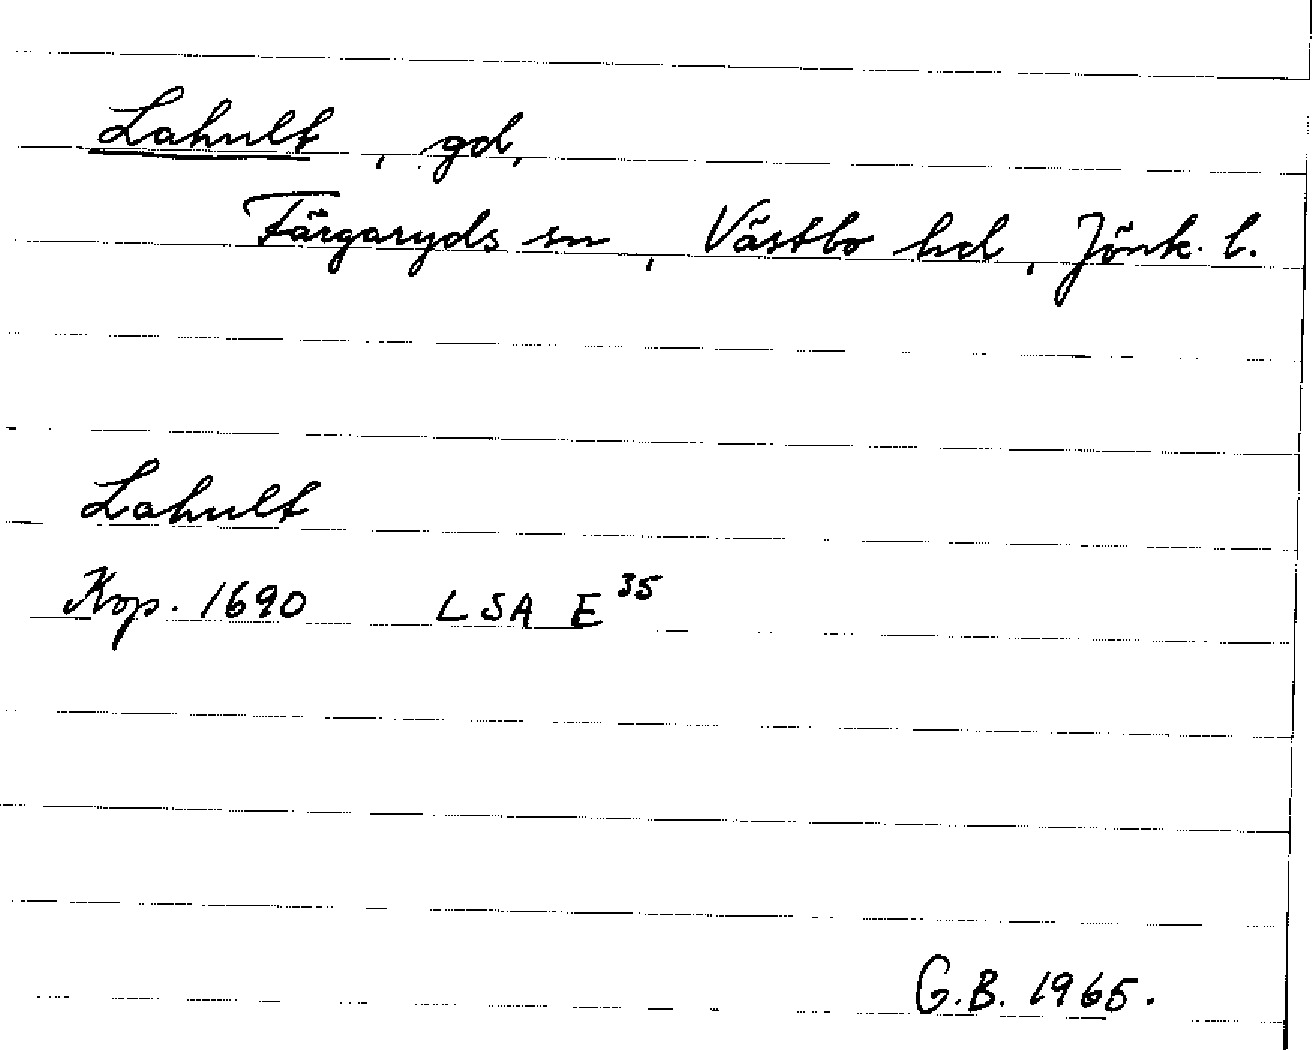 Lahult, gd,
Färgaryds sn, Västbo hd, Jönk. l.
Lahult
Kop. 1690 LSA E 35
G.B. 1965.